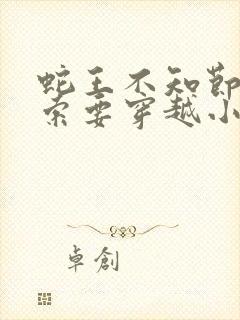 蛇王不知节
索要穿越小
卓创